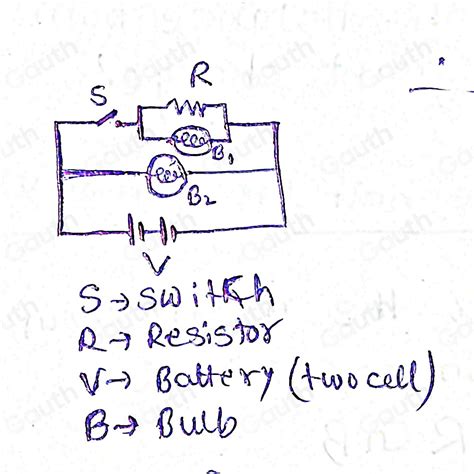 R
S
B₁
B₂
V
S→ switch
R→ Resistor
V→ Battery (two cell)
B→ Bulb